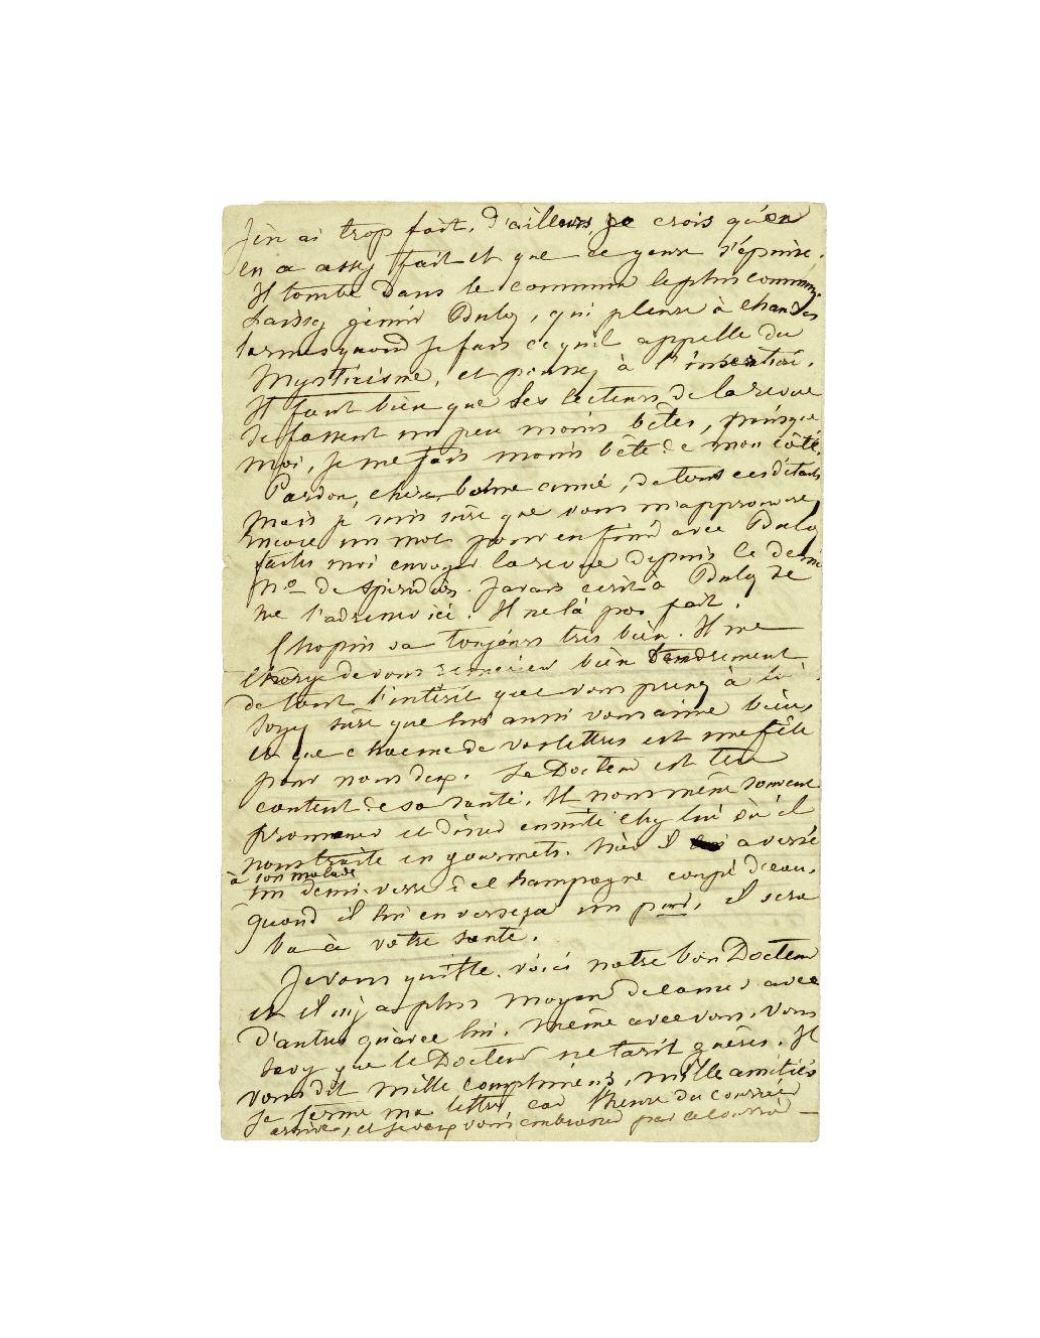 J'en ai trop fait. D'ailleurs, je crois qu'on
en a assez fait et que ce genre s'épuise.
Il tombe dans le commun le plus commun.
Laissez gémir Buloz, qui pleure à chaudes
larmes quand je fais ce qu'il appelle du
mysticisme, et poussez à l'insertion.
Il faut bien que les lecteurs de la revue
se fassent un peu moins bêtes, puisque
moi, je me fais moins bête de mon côté.
Pardon, chère bonne amie, de tous ces détails
mais je suis sûre que vous m'approuvez
Encore un mot pour en finir avec Buloz
faites moi envoyer la revue depuis le dernier
No de Spiridion. J'avais écrit à Buloz de
me l'adresser ici. Il ne l'a pas fait.
Chopin va toujours très bien. Il me
charge de vous remercier bien tendrement
de tout l'intérêt que vous prenez à lui.
Soyez sûre que lui aussi vous aime bien,
et que chacune de vos lettres est une fête
pour nous deux. Le Docteur est très
content de sa santé. Il nous mène souvent
promener et dîner ensuite chez lui où il
nous traite en gourmets. Hier il a versé
à son malade
un demi-verre de champagne coupé d'eau.
quand il lui en versera un pur, il sera
bu à votre santé.
Je vous quitte. voici notre bon Docteur
et il n'y a plus moyen de causer avec
d'autres qu'avec lui. Même avec vous. Vous
savez que le Docteur ne tarit guères. Il
vous dit mille complimens, mille amitiés
Je ferme ma lettre car l'heure du courrier
arrive, et je veux vous embrasser par ce courrier